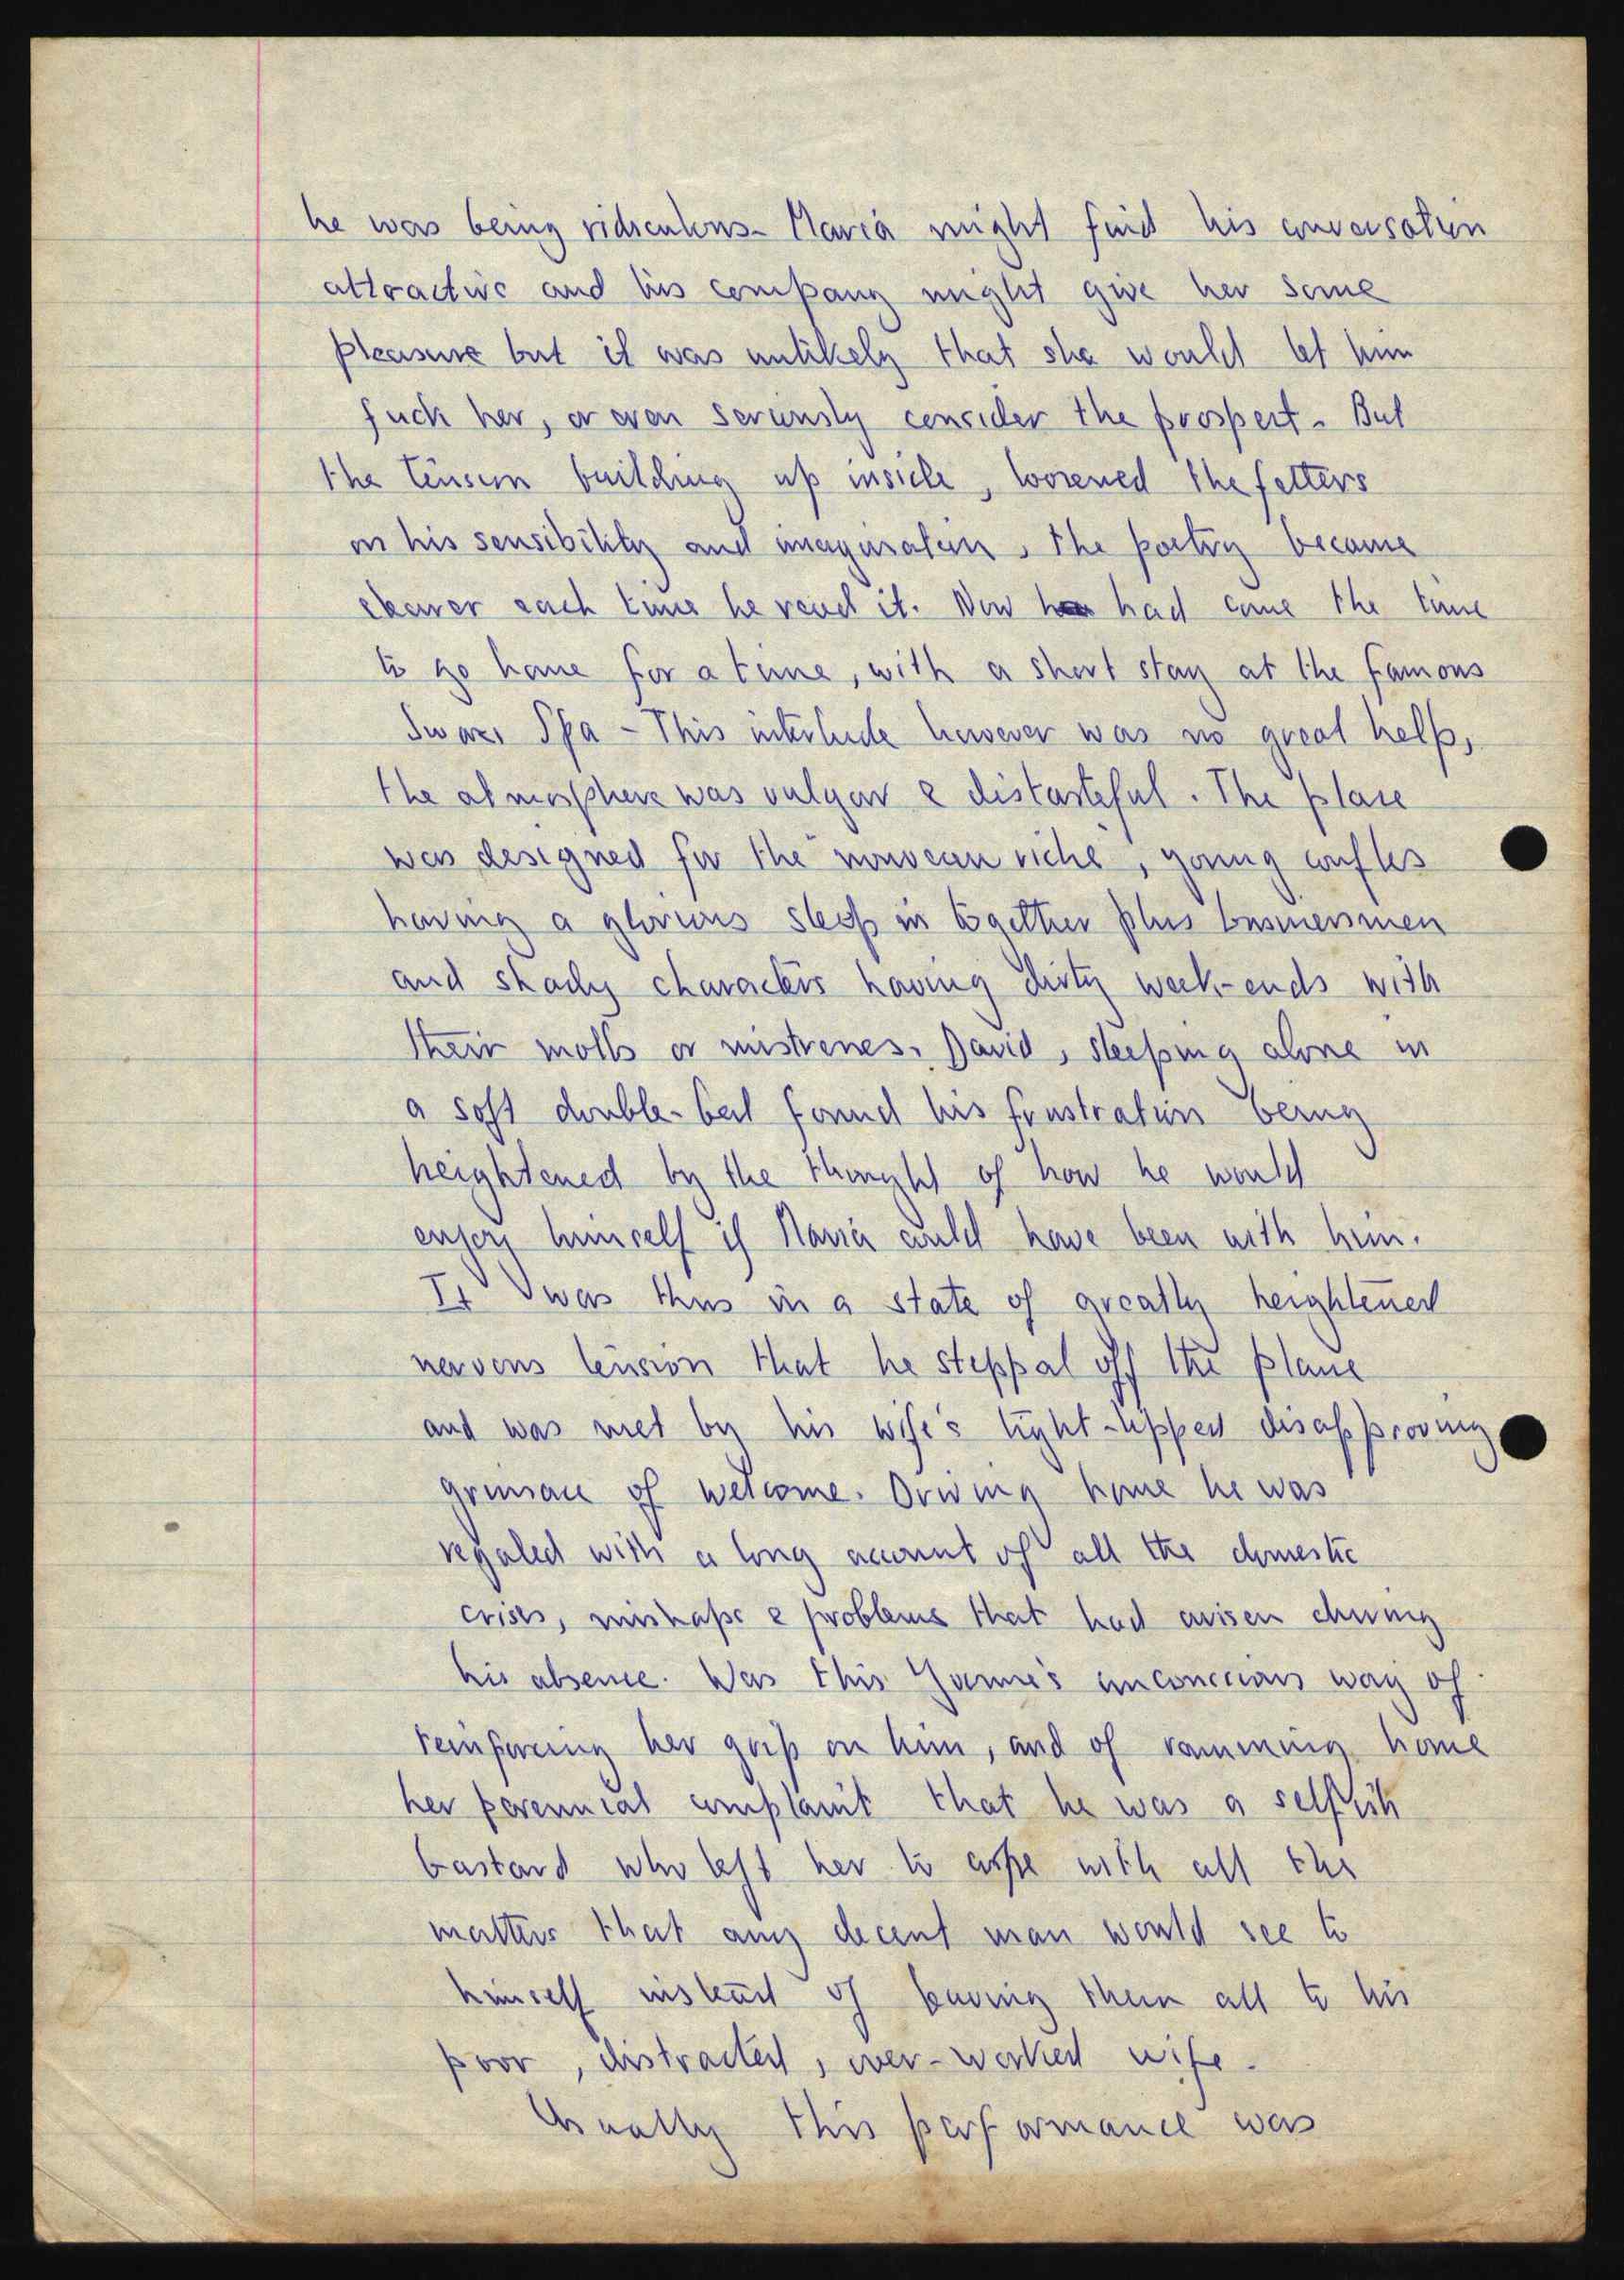 he was being ridiculous. Maria might find his conversation
attractive and his company might give her some
pleasure but it was unlikely that she would let him
fuck her, or even seriously consider the prospect. But
the tension building up inside, loosened the fetters
on his sensibility and imagination, the poetry became
clearer each time he read it. Now had come the time
to go home for a time, with a short stay at the famous
Spa - This interlude however was no great help,
the atmosphere was vulgar & distasteful. The place
was designed for the "nouveau riche", young couples
having a glorious sleep in together plus businessmen
and shady characters having dirty week-ends with
their molls or mistresses. David, sleeping alone in
a soft double-bed found his frustration being
heightened by the thought of how he would
enjoy himself if Maria could have been with him.
It was thus in a state of greatly heightened
nervous tension that he stepped off the plane
and was met by his wife's tight-lipped disapproving
grimace of welcome. Driving home he was
regaled with a long account of all the domestic
crises, mishaps & problems that had arisen during
his absence. Was this unconscious way of
reinforcing her grip on him, and of ramming home
her perennial complaint that he was a selfish
bastard who left her to cope with all the
matters that any decent man would see to
himself instead of leaving them all to his
poor, distracted, over-worked wife.
Usually this performance was